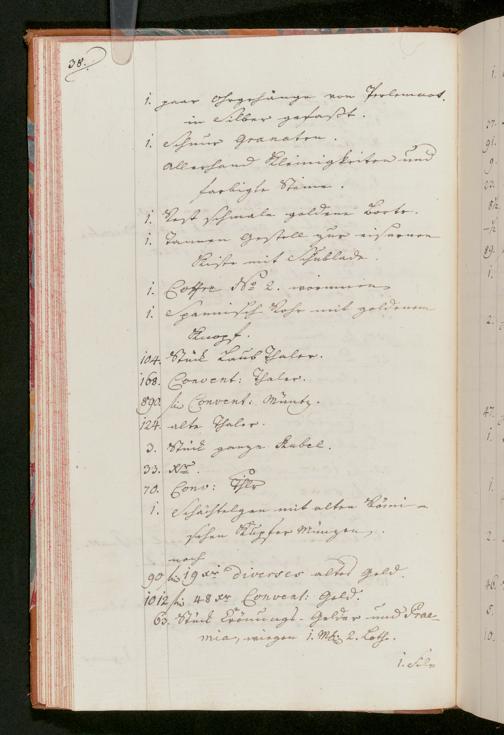 38.
1. paar Ohrgehänge von Perlemoot.
in Silber gefaßt.
1. Schnur Granaten.
Allerhand Kleinigkeiten und
farbigte Steine.
1. Rest schmale goldene Borte.
1. Tannen Gestell zur eisernen
Kiste mit Schublade.
1. Coffre No 2. worinnen
1. Spannisch Rohr mit goldenem
Knopf.
104. Stück Laub Thaler.
168. Convent: Thaler.
890. Convent: Müntz.
124. alte Thaler.
3. Stück ganze Rubel.
33. Xr.
70. Conv: Thlr
1. Schächtelgen mit alten Römi-
schen Kupfer Münzen,
noch
90 19 Xr diverses altes Geld.
1012 48 Xr Convent: Geld.
63. Stück Crönungs-Gelder und Prae-
mia, wiegen 1. Mk 2. Loth.
1. Silb